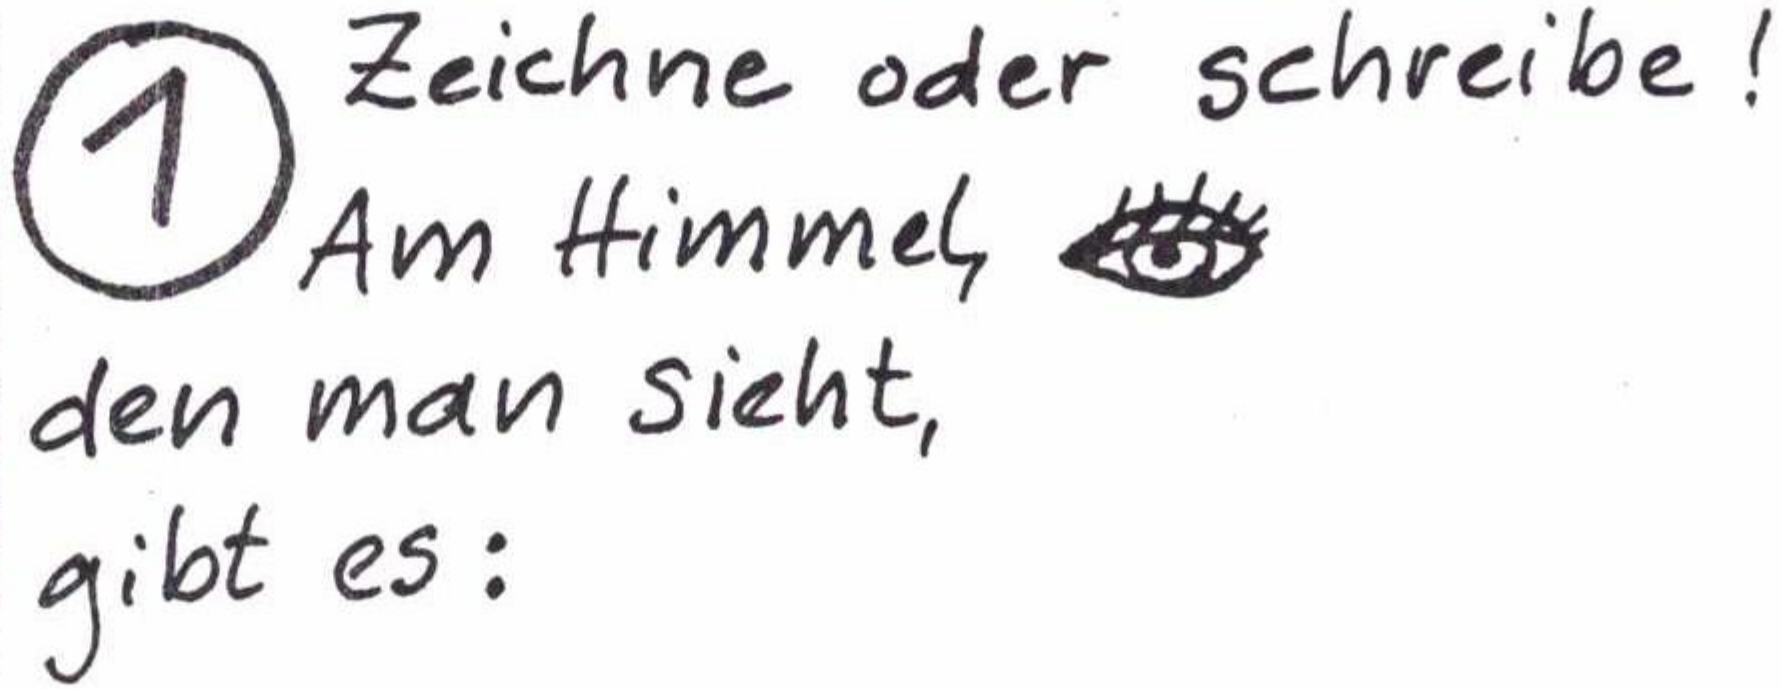 1 Zeichne oder schreibe!
Am Himmel,
den man sieht,
gibt es: